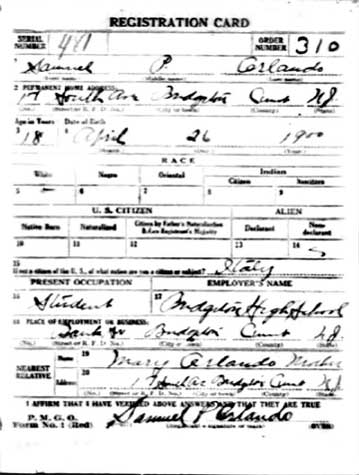 REGISTRATION CARD
SERIAL NUMBER 481 ORDER NUMBER 310
1 Samuel P. Orlando
(First name) (Middle name) (Last name)
2 PERMANENT HOME ADDRESS:
17 South Ave Bridgeton Cumb NJ
(No.) (Street or R. F. D. No.) (City or town) (County) (State)
Age in Years Date of Birth
3 18 4 April 26 1900
(Month) (Day) (Year)
RACE
White Negro Oriental Indian
Citizen Noncitizen
5 6 7 8 9
U. S. CITIZEN ALIEN
Native Born Naturalized Citizen by Father's Naturalization Before Registrant's Majority Declarant Non-declarant
10 11 12 13 14
15
If not a citizen of the U. S., of what nation are you a citizen or subject? Italy
PRESENT OCCUPATION EMPLOYER'S NAME
16 Student 17 Bridgeton High School
18 PLACE OF EMPLOYMENT OR BUSINESS:
Bank St Bridgeton Cumb NJ
(No.) (Street or R. F. D. No.) (City or town) (County) (State)
NEAREST RELATIVE
Name 19 Mary Orlando Mother
Address 20 17 South Ave Bridgeton Cumb N.J.
(No.) (Street or R. F. D. No.) (City or town) (County) (State)
I AFFIRM THAT I HAVE VERIFIED ABOVE ANSWERS AND THAT THEY ARE TRUE
P. M. G. O.
Form No. 1 (Red) Samuel P Orlando
(Registrant's signature or mark) (OVER)